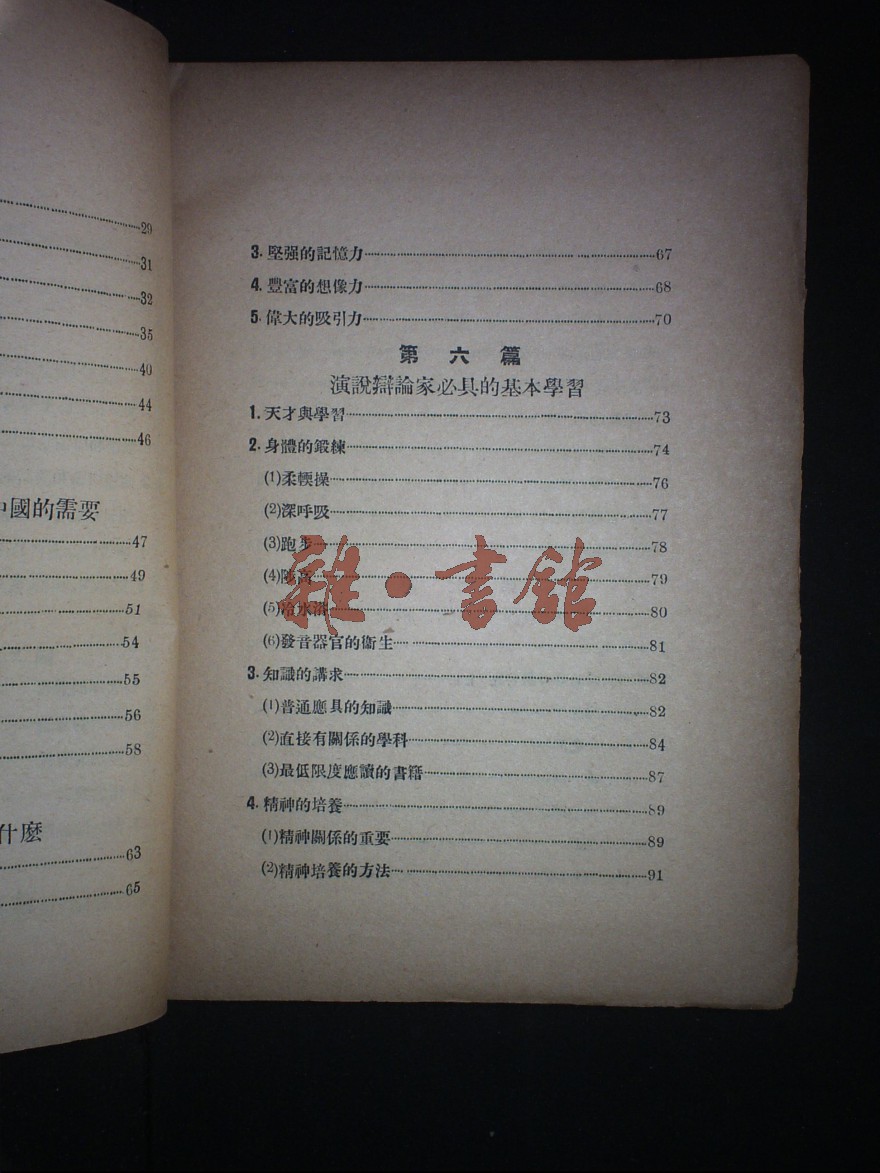 29
31
32
35
40
44
46
國的需要
47
49
51
54
55
56
58
什麼
63
65
3. 堅强的記憶力 67
4. 豐富的想像力 68
5. 偉大的吸引力 70
第六篇
演說辯論家必具的基本學習
1. 天才與學習 73
2. 身體的鍛練 74
(1)柔輭操 76
(2)深呼吸 77
(3)跑步 78
(4) 79
(5)冷水浴 80
(6)發音器官的衞生 81
3. 知識的講求 82
(1)普通應具的知識 82
(2)直接有關係的學科 84
(3)最低限度應讀的書籍 87
4. 精神的培養 89
(1)精神關係的重要 89
(2)精神培養的方法 91
雜·書館